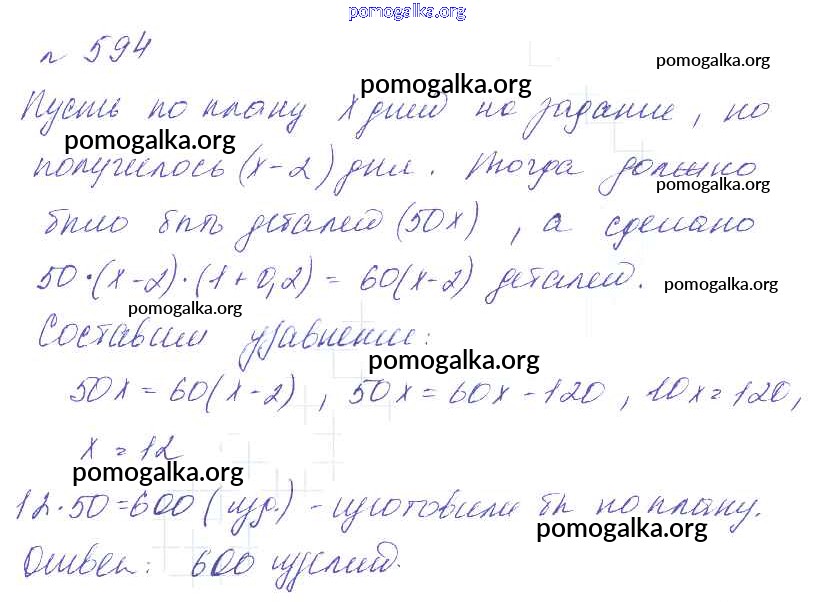 pomogalka.org
№ 594
pomogalka.org
Пусть по плану x дней на задание, но
pomogalka.org
pomogalka.org
получилось (x-2) дня. Тогда должно
pomogalka.org
было быть деталей (50x), а сделано
50·(x-2)·(1+0,2) = 60(x-2) деталей.
pomogalka.org
pomogalka.org
Составим уравнение:
pomogalka.org
50x = 60(x-2), 50x = 60x - 120, 10x = 120,
x = 12
pomogalka.org
12·50=600 (изд.) - изготовили бы по плану.
pomogalka.org
Ответ: 600 изделий.